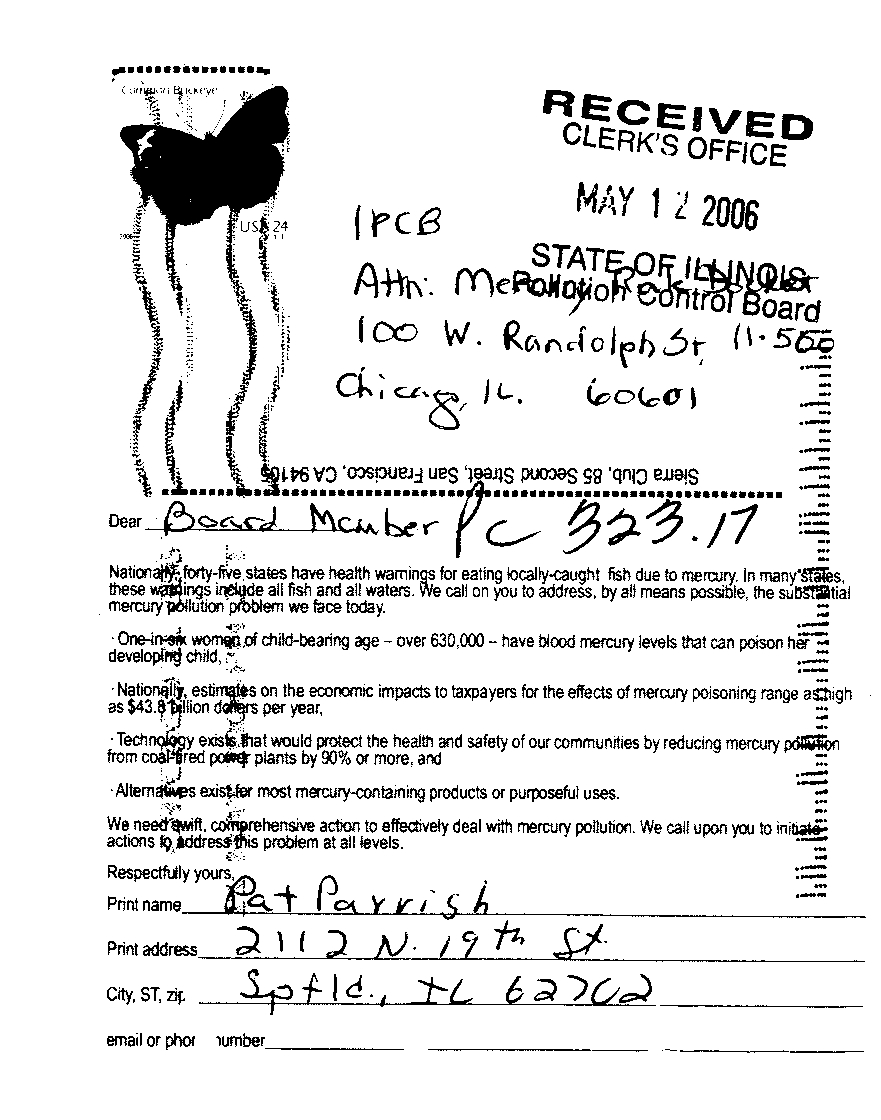 Common Buckeye
USA 24
RECEIVED
CLERK'S OFFICE
MAY 12 2006
STATE OF ILLINOIS
Pollution Control Board
IPCB
Attn: Mercury Rule Docket
100 W. Randolph St, 11-500
Chicago, IL. 60601
Sierra Club, 85 Second Street, San Francisco, CA 94105
Dear Board Member PC 323.17
Nationally, forty-five states have health warnings for eating locally-caught fish due to mercury. In many states,
these warnings include all fish and all waters. We call on you to address, by all means possible, the substantial
mercury pollution problem we face today.
· One-in-six women of child-bearing age – over 630,000 – have blood mercury levels that can poison her
developing child,
· Nationally, estimates on the economic impacts to taxpayers for the effects of mercury poisoning range as high
as $43.8 billion dollars per year,
· Technology exists that would protect the health and safety of our communities by reducing mercury pollution
from coal-fired power plants by 90% or more, and
· Alternatives exist for most mercury-containing products or purposeful uses.
We need swift, comprehensive action to effectively deal with mercury pollution. We call upon you to initiate
actions to address this problem at all levels.
Respectfully yours,
Print name Pat Parrish
Print address 2112 N. 19th St.
City, ST, zip Spfld., IL 62702
email or phor number